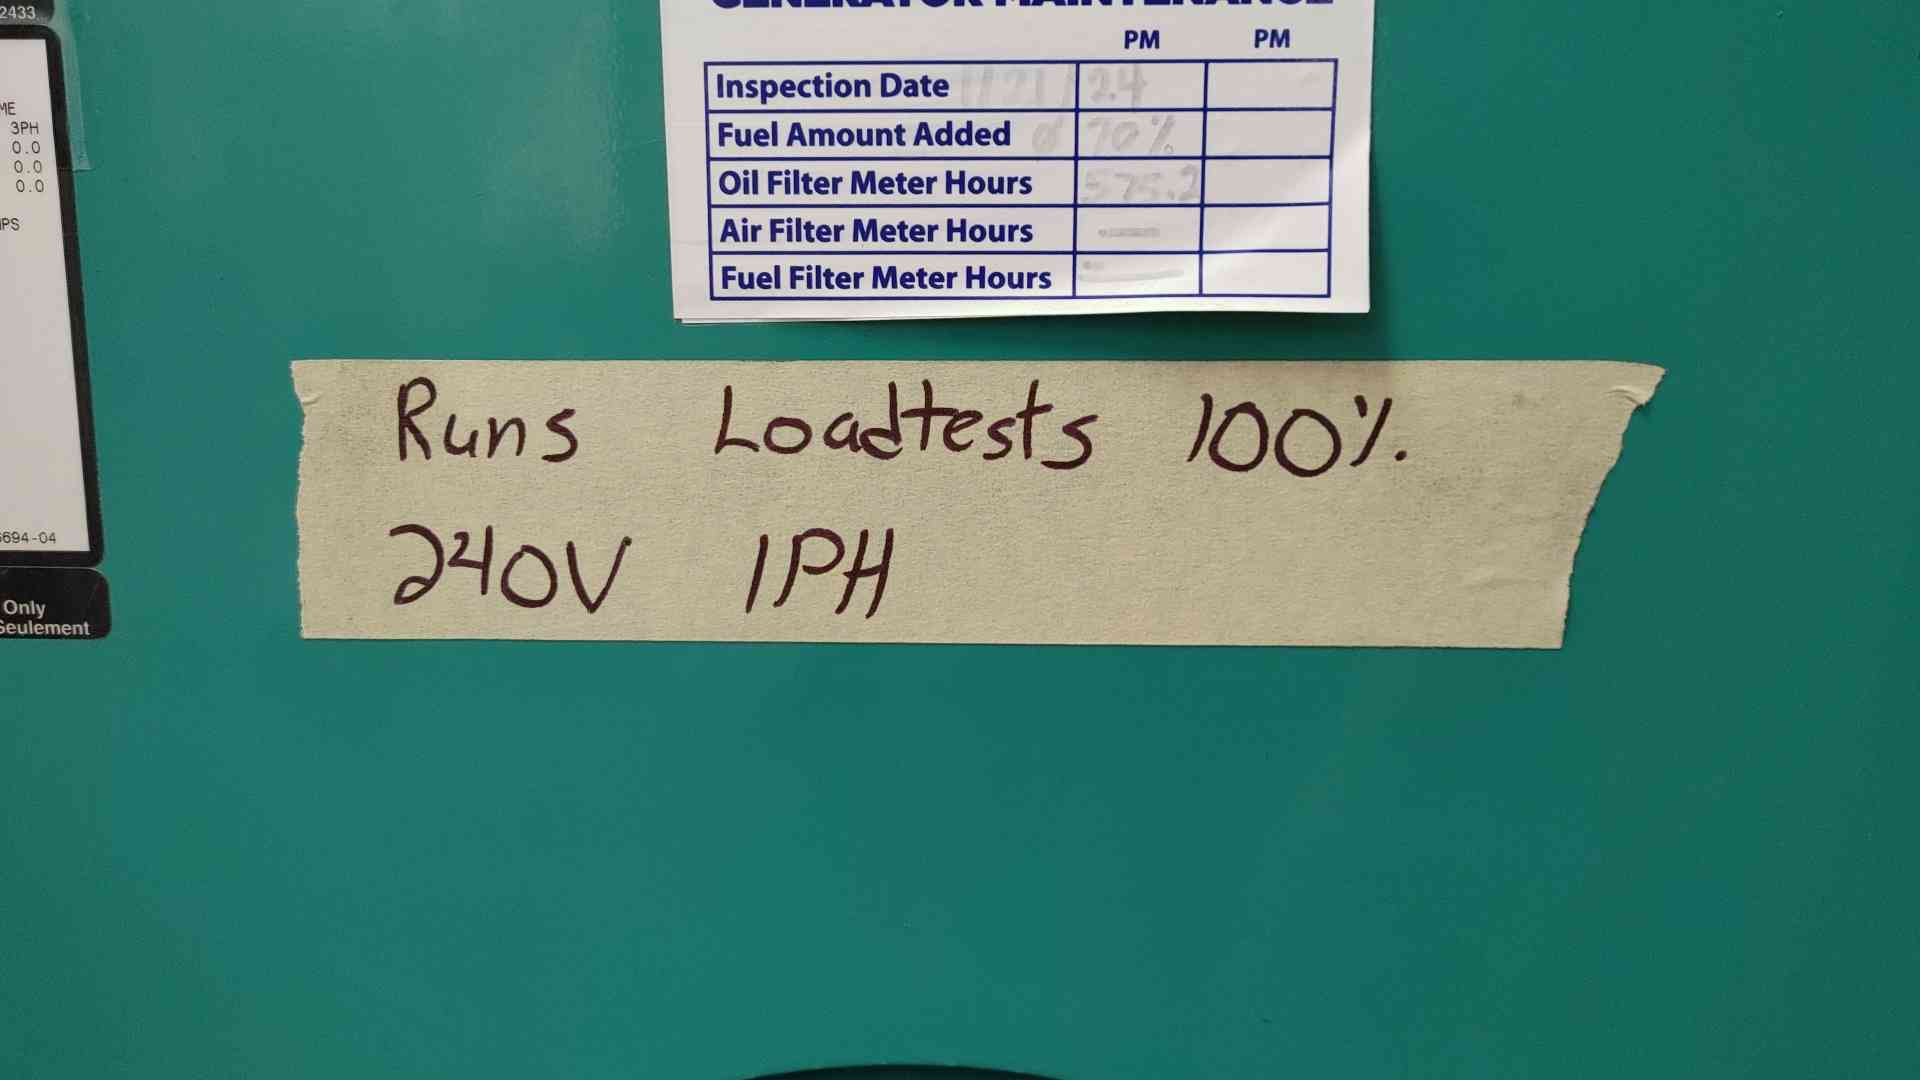 2433
ME
3PH
0.0
0.0
0.0
MPS
6694-04
Only
Seulement
GENERATOR MAINTENANCE
PM PM
Inspection Date 1/21/24
Fuel Amount Added 70%
Oil Filter Meter Hours 575.2
Air Filter Meter Hours
Fuel Filter Meter Hours
Runs Loadtests 100%
240V 1PH